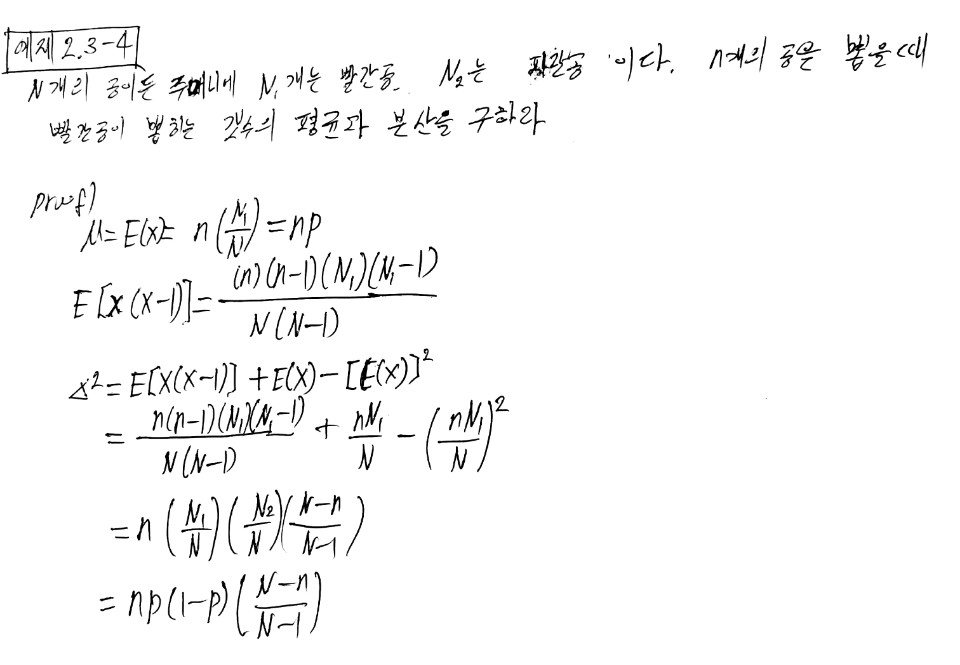 예제 2.3-4
N개리 공이든 주머니에 N₁개는 빨간공. N₂는 파란공 이다. n개의 공은 뽑을때
빨간공이 뽑히는 갯수의 평균과 분산을 구하라
proof)
μ = E(X) = n(N₁/N) = np
E[X(X-1)] = (n)(n-1)(N₁)(N₁-1) / N(N-1)
σ² = E[X(X-1)] + E(X) - [E(X)]²
= n(n-1)(N₁)(N₁-1) / N(N-1) + nN₁/N - (nN₁/N)²
= n(N₁/N)(N₂/N)(N-n/N-1)
= np(1-p)(N-n/N-1)